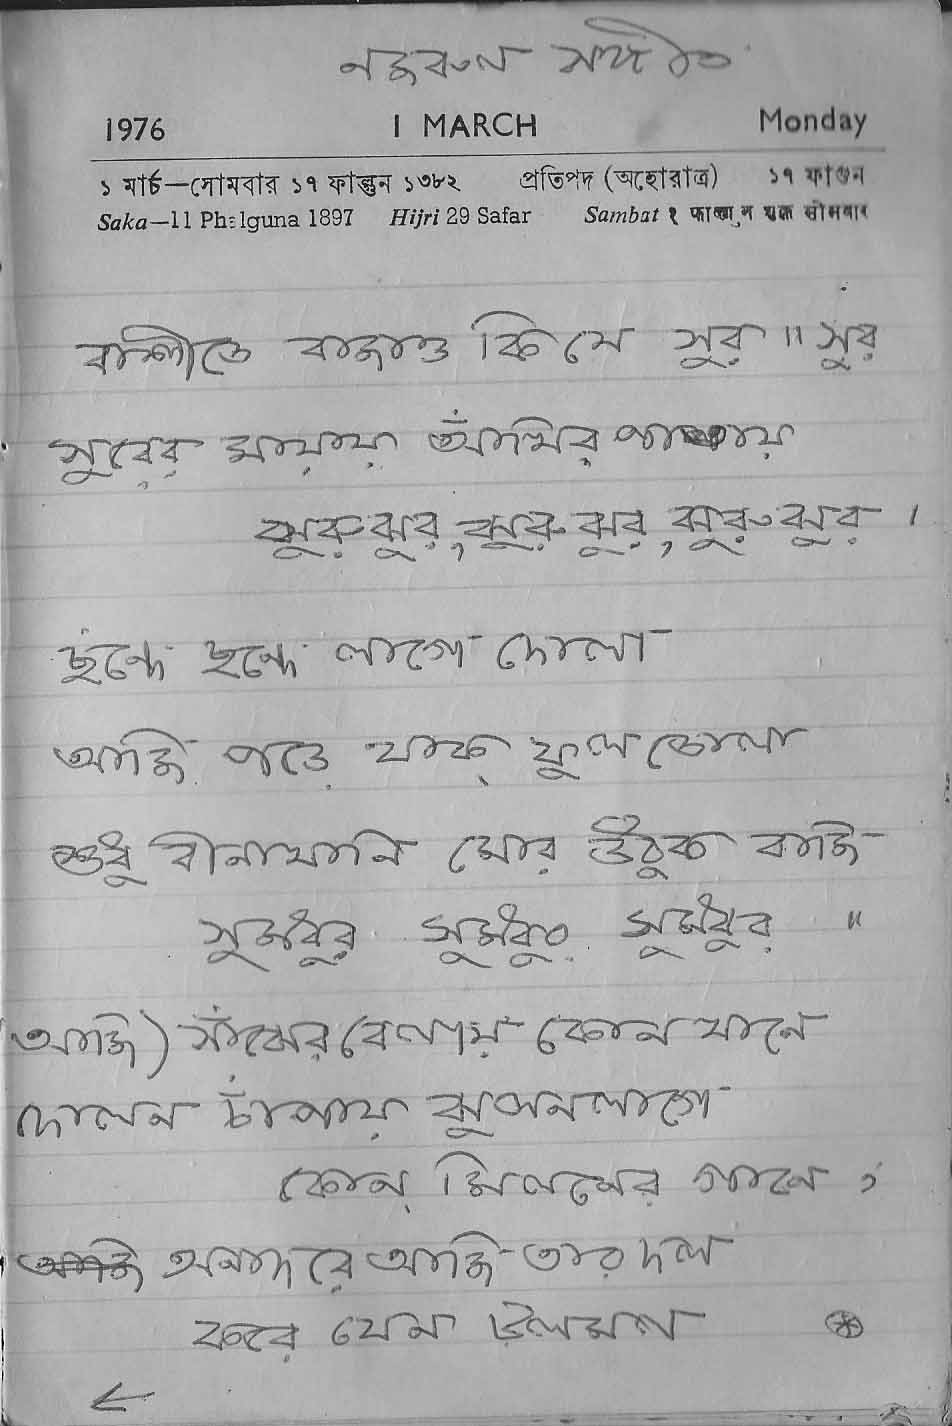 নজরুল সঙ্গীত
1976 1 MARCH Monday
১ মার্চ—সোমবার ১৭ ফাল্গুন ১৩৮২ প্রতিপদ (অহোরাত্র) ১৭ ফাগুন
Saka—11 Phalguna 1897 Hijri 29 Safar Sambat १ फाल्गुन शुक्ल सोमवार
বাশীতে বাজাও কি যে সুর ॥ সুর
সুরের মায়ায় আঁখির পাতায়
ঝুরুঝুর, ঝুরু ঝুর, ঝুরুঝুর ।
ছন্দে ছন্দে লাগে দোলা
আজি পড়ে যাক্ ফুল তোলা
শুধু বীনাখানি মোর উঠুক বাজি
সুমধুর সুমধুর সুমধুর ॥
আজি) সাঁঝের বেলায় কোন খানে
দোলন চাঁপায় ঝুলনলাগে
কোন্ মিলনের গানে ,
আজি অনাদরে আজি তার দল
করে যেন টলমল